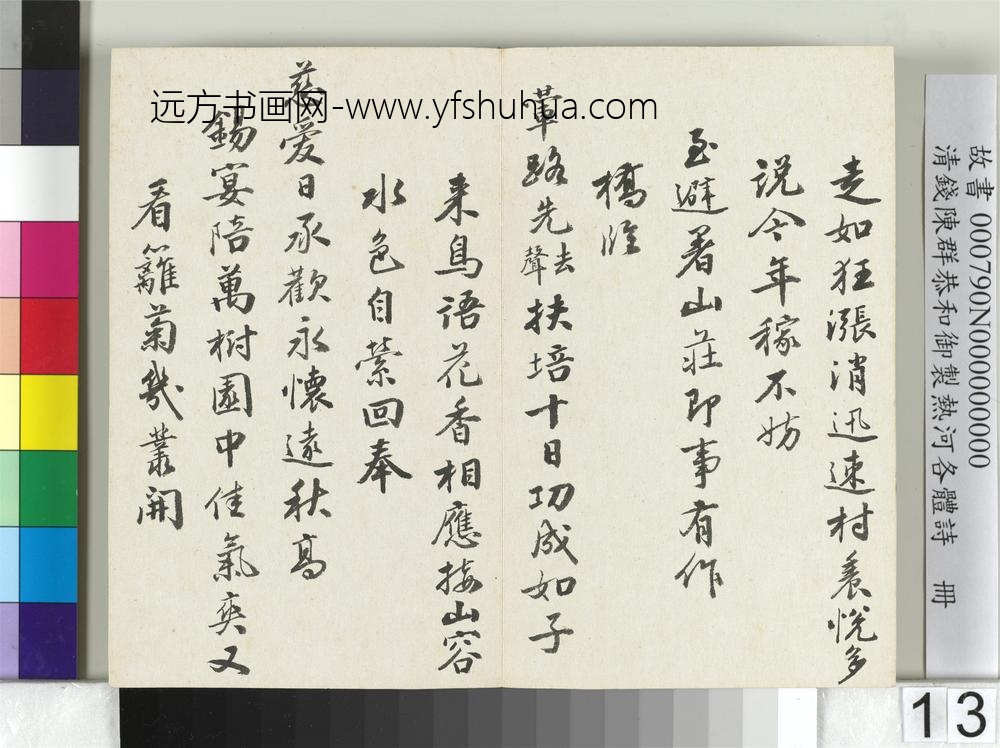 走如狂漲消迅速村裏悅多
說今年稼不妨
至避暑山莊即事有作
橋脽
蓽路先聲去扶培十日功成如子
来鳥語花香相應接山容
水色自縈回奉
慈愛日承歡永懷遠秋高
錫宴陪萬樹園中佳氣爽又
看籬菊幾叢開
远方书画网-www.yfshuhua.com
故書 000790N000000000
清錢陳群恭和御製熱河各體詩 冊
13